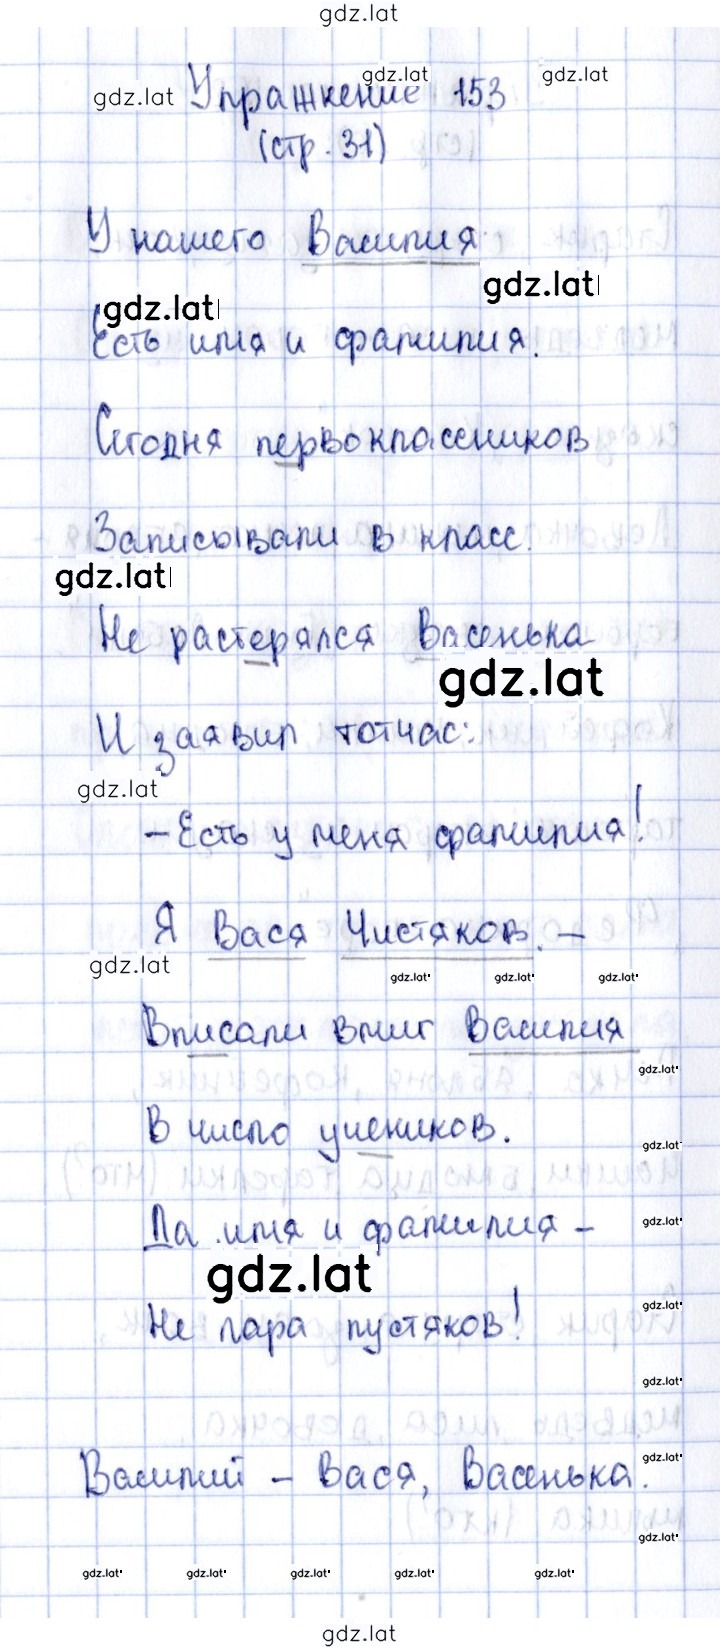 gdz.lat
Упражнение 153
gdz.lat gdz.lat gdz.lat
(стр. 31)
У нашего Василия
gdz.lat gdz.lat
Есть имя и фамилия.
Сегодня первоклассников
Записывали в класс.
gdz.lat
Не растерялся Васенька
gdz.lat
И заявил тотчас:
gdz.lat
– Есть у меня фамилия!
Я Вася Чистяков. –
gdz.lat gdz.lat gdz.lat gdz.lat
Вписали вмиг Василия
gdz.lat
В число учеников.
gdz.lat
Да имя и фамилия –
gdz.lat
gdz.lat
gdz.lat
Не пара пустяков!
gdz.lat
Василий – Вася, Васенька.
gdz.lat
gdz.lat
gdz.lat gdz.lat gdz.lat gdz.lat gdz.lat
gdz.lat